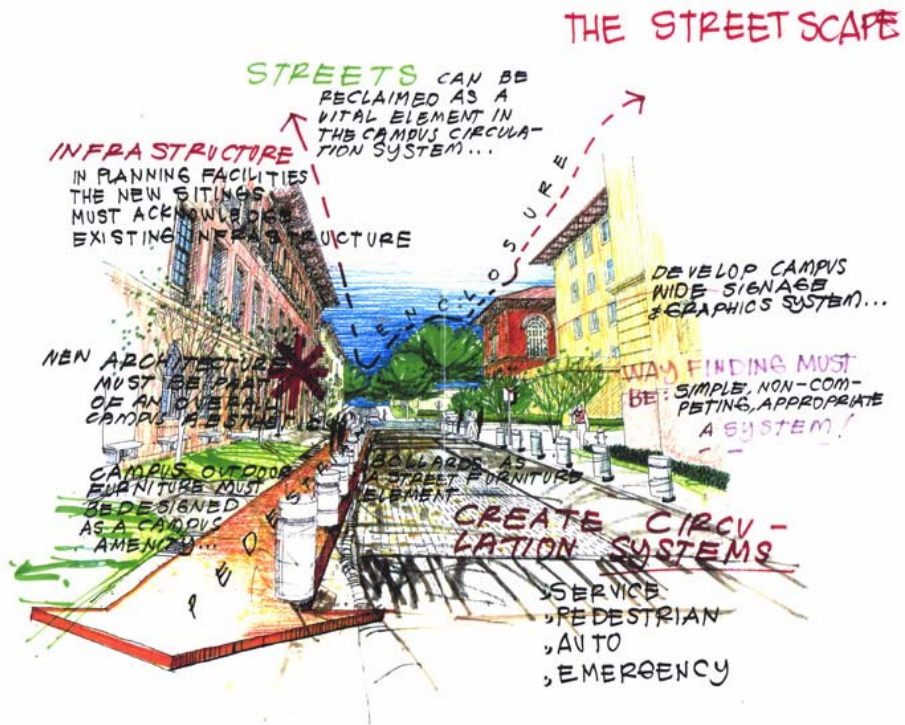 THE STREETSCAPE
STREETS CAN BE
RECLAIMED AS A
VITAL ELEMENT IN
THE CAMPUS CIRCULA-
TION SYSTEM...
INFRASTRUCTURE
IN PLANNING FACILITIES
THE NEW SITINGS
MUST ACKNOWLEDGE
EXISTING INFRASTRUCTURE
ENCLOSURE
DEVELOP CAMPUS
WIDE SIGNAGE
& GRAPHICS SYSTEM...
NEW ARCHITECTURE
MUST BE PART
OF AN OVERALL
CAMPUS AESTHETIC
WAY FINDING MUST
BE: SIMPLE, NON-COM-
PETING, APPROPRIATE
A SYSTEM!
CAMPUS OUTDOOR
FURNITURE MUST
BE DESIGNED
AS A CAMPUS
AMENITY...
PEDESTRIAN
BOLLARDS AS
A STREET FURNITURE
ELEMENT
CREATE CIRCU-
LATION SYSTEMS
, SERVICE
, PEDESTRIAN
, AUTO
, EMERGENCY